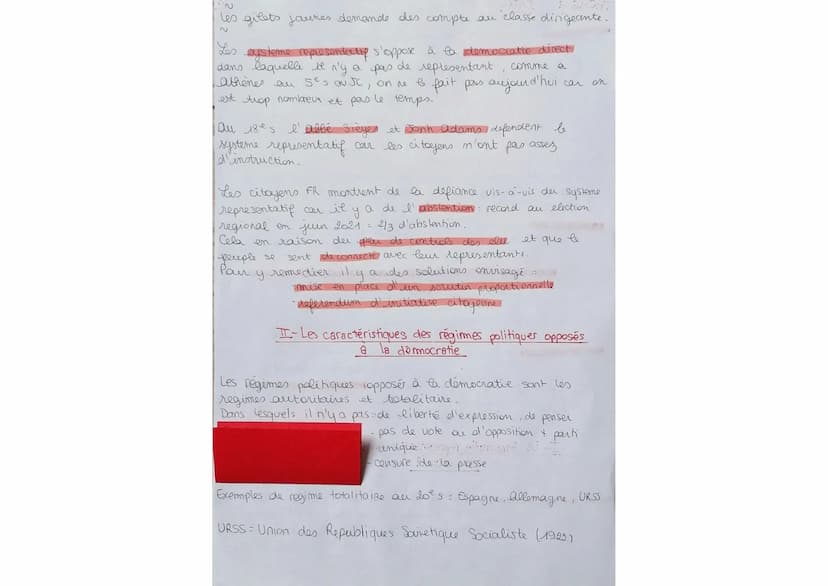 ~
Les gilets jaunes demande des compte au classe dirigeante.
~
Les système representatif s'oppose à la democratie direct
dans laquelle il n'y a pas de representant, comme à
Athènes au 5e s av JC, on ne le fait pas aujourd'hui car on
est trop nombreux et pas le temps.
Au 18e s l'Abbé Siéyes et Jonh Adams defendent le
système representatif car les citoyens n'ont pas assez
d'instruction.
Les citoyens FR montrent de la défiance vis-à-vis du système
representatif car il y a de l'abstention : record au election
regional en juin 2021 = 2/3 d'abstention.
Cela en raison du peu de controle des élus et que le
peuple se sent deconnecté avec leur representant.
Pour y remedier il y a des solutions envisagé =
- mise en place d'un scrutin proportionnelle
- referendum d'initiative citoyenne
II - Les caractéristiques des régimes politiques opposés
à la démocratie
Les régimes politiques opposés à la démocratie sont les
regimes autoritaires et totalitaire.
Dans lesquels il n'y a pas - de liberté d'expression, de penser
- pas de vote ou d'opposition + parti
unique
- censure de la presse
Exemples de regime totalitaire au 20e s : Espagne, Allemagne, URSS
URSS = Union des Republiques Sovietique Socialiste (1922)